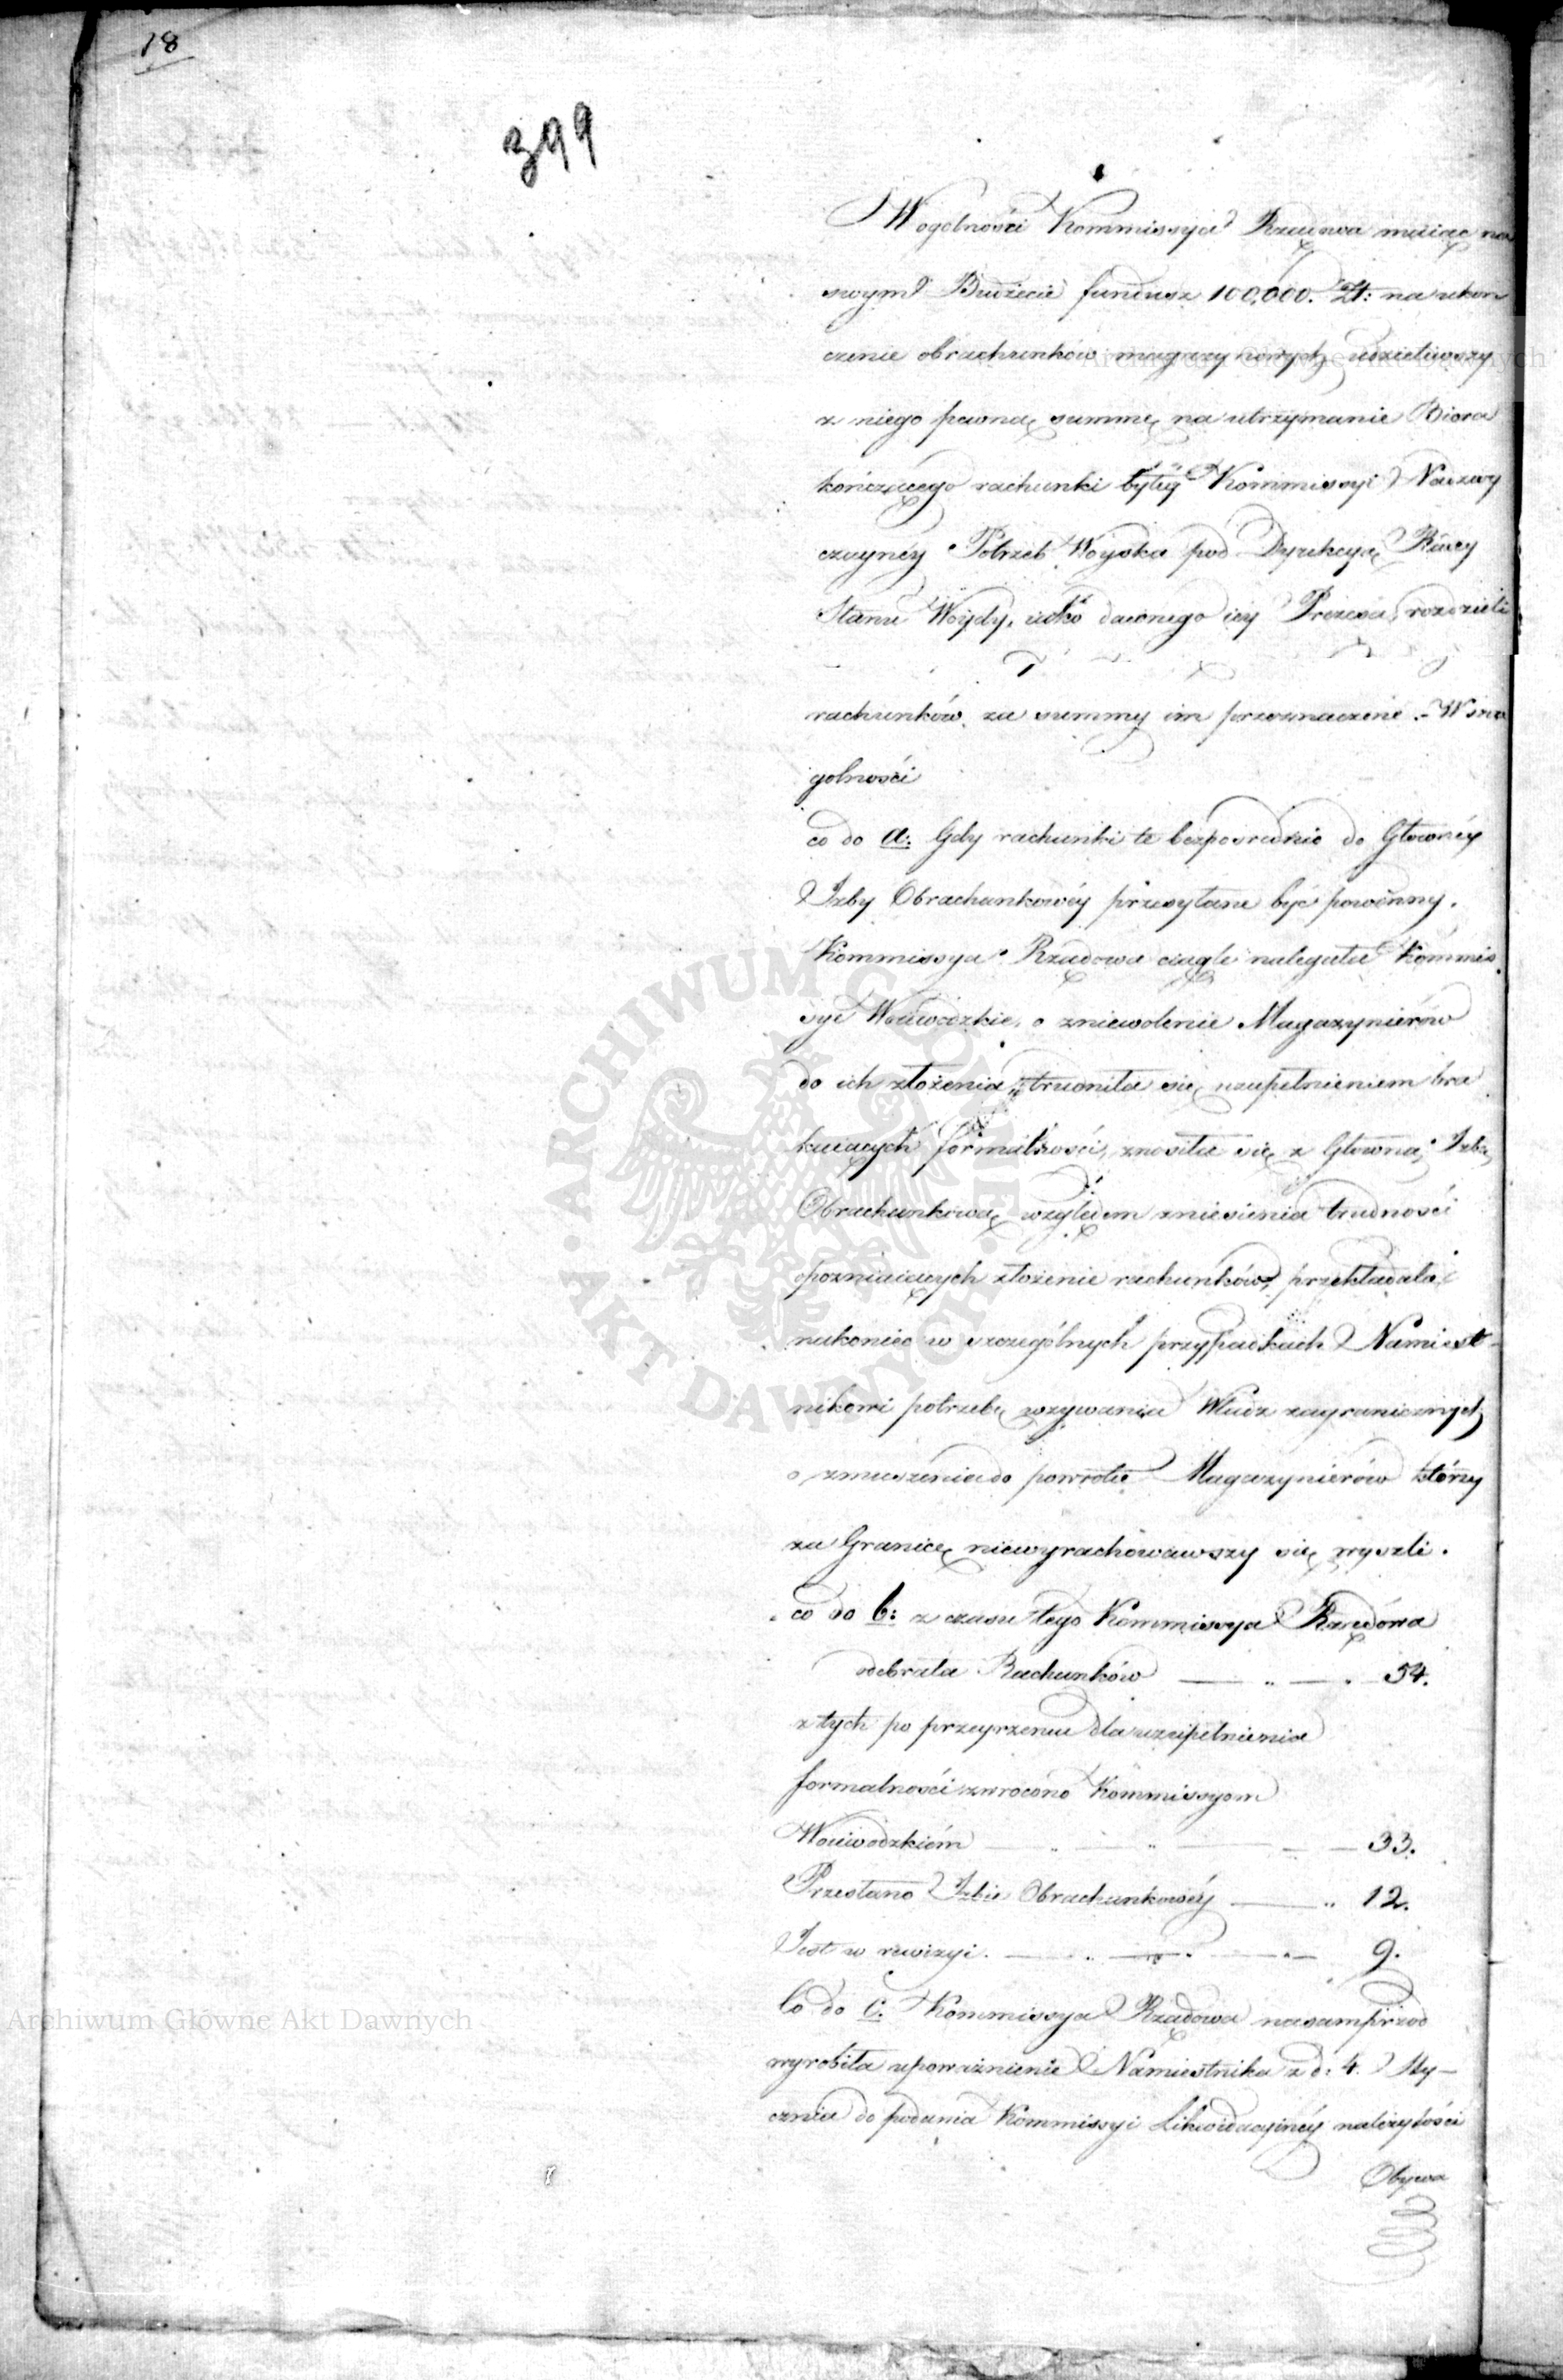 18
399
W ogolności Kommissya Rządowa maiąc na
swym Budżecie fundusz 100,000. Zł: na ukoń
czenie obrachunków magazynowych, udzieliwszy
z niego pewną summę na utrzymanie Biora
kończącego rachunki byłey Kommissyi Nadzwy
czayney Potrzeb Woyska pod Dyrekcyą Radcy
Stanu Woydy, iako dawnego iey Prezesa, rozdzieli
rachunków, za summy im przeznaczone. - W szcze
golności
co do a: Gdy rachunki te bezposrednio do Głowney
Izby Obrachunkowéy przesyłane być powinny.
Kommissya Rządowa ciągle nalegała Kommis
sye Woiewodzkie, o zniewolenie Magazynierów
do ich złożenia, trudniła się uzupełnieniem bra
kuiących formalności, znosiła się z Głowną Izbą
Obrachunkową względem zniesienia trudności
opozniaiących złożenie rachunków, przekładała
nakoniec w szczególnych przypadkach Namiest-
nikowi potrzebę wzywania Władz zagranicznych
o zmuszenia do powrotu Magazynierów którzy
za Granicę niewyrachowawszy się wyszli.
co do b: z czasu tego Kommissya Rządowa
odebrała Rachunków — „ — „ — 54.
z tych po przeyrzeniu dla uzupełnienia
formalności zwrócono Kommissyom
Woiewodzkiém — „ — „ — — — 33.
Przesłano Izbie Obrachunkowéy — „ 12.
Jest w rewizyi. — „ — „ — „ — 9.
Co do c: Kommissya Rządowa nasamprzod
wyrobiła upoważnienie Namiestnika z d: 4. Sty-
cznia do podania Kommissyi Likwidacyinéy należytości
Obywa
ARCHIWUM GŁÓWNE · AKT DAWNYCH ·
Archiwum Główne Akt Dawnych
Archiwum Główne Akt Dawnych